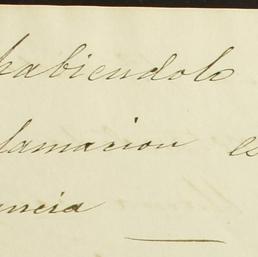 habiendolo
lamacion es
ancia